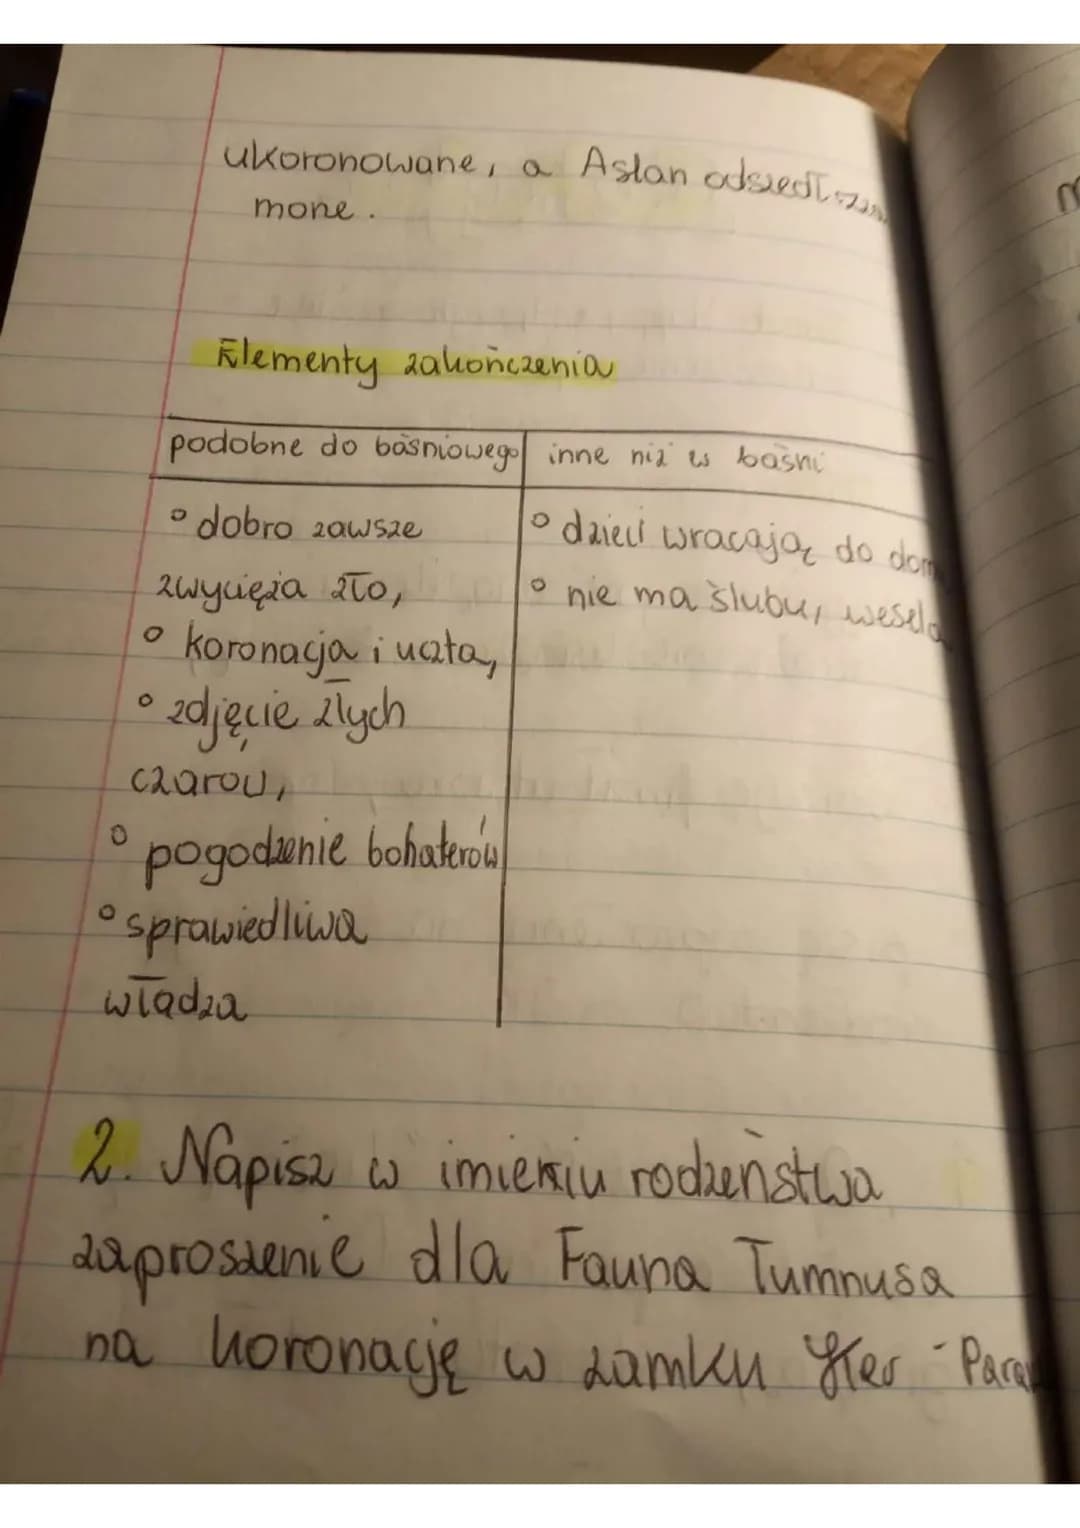 ukoronowane, a Aslan odszedł
mone.
Elementy zakończenia
podobne do baśniowego inne niż w baśni
° dobro zawsze
zwycięża zło,
° koronacja i uczta,
° zdjęcie złych
czarów,
° pogodzenie bohaterów
° sprawiedliwa
władza
° dzieci wracają do
° nie ma ślubu, wesela
2. Napisz w imieniu rodzeństwa
zaproszenie dla Fauna Tumnusa
na koronację w zamku Ker-